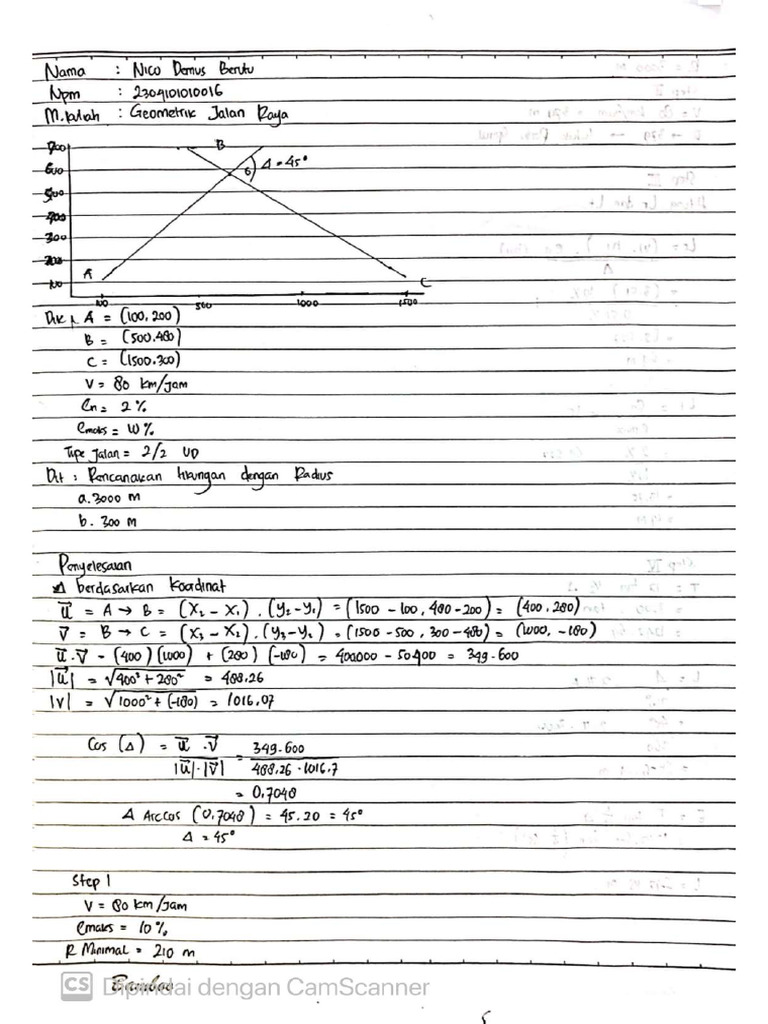 Nama : Nico Demus Berutu
Npm : 2304101010016
M.kuliah : Geometrik Jalan Raya
700 B
600 6 Δ = 45°
500
400
300
200 A
100 C
100 500 1000 1500
Dik : A = (100, 200)
B = (500.480)
C = (1500.300)
V = 80 km/jam
en = 2 %
emaks = 10 %
Tipe Jalan = 2/2 UD
Dit : Rencanakan tikungan dengan Radius
a. 3000 m
b. 300 m
Penyelesaian
Δ berdasarkan koordinat
u = A → B = (X₂ - X₁) . (Y₂ - Y₁) = (1500 - 100, 480 - 200) = (400, 280)
v = B → C = (X₃ - X₂) . (Y₃ - Y₂) = (1500 - 500, 300 - 480) = (1000, -180)
u . v - (400) (1000) + (280) (-180) = 400000 - 50400 = 349.600
|u| = √400² + 280² = 488.26
|v| = √1000² + (-180) = 1016.07
Cos (Δ) = u . v = 349.600
|u| . |v| 488.26 . 1016.7
= 0.7048
Δ Arccos (0.7048) = 45.20 = 45°
Δ = 45°
Step 1
V = 80 km/jam
emaks = 10 %
R Minimal = 210 m
Bamboo
CS Dipindai dengan CamScanner